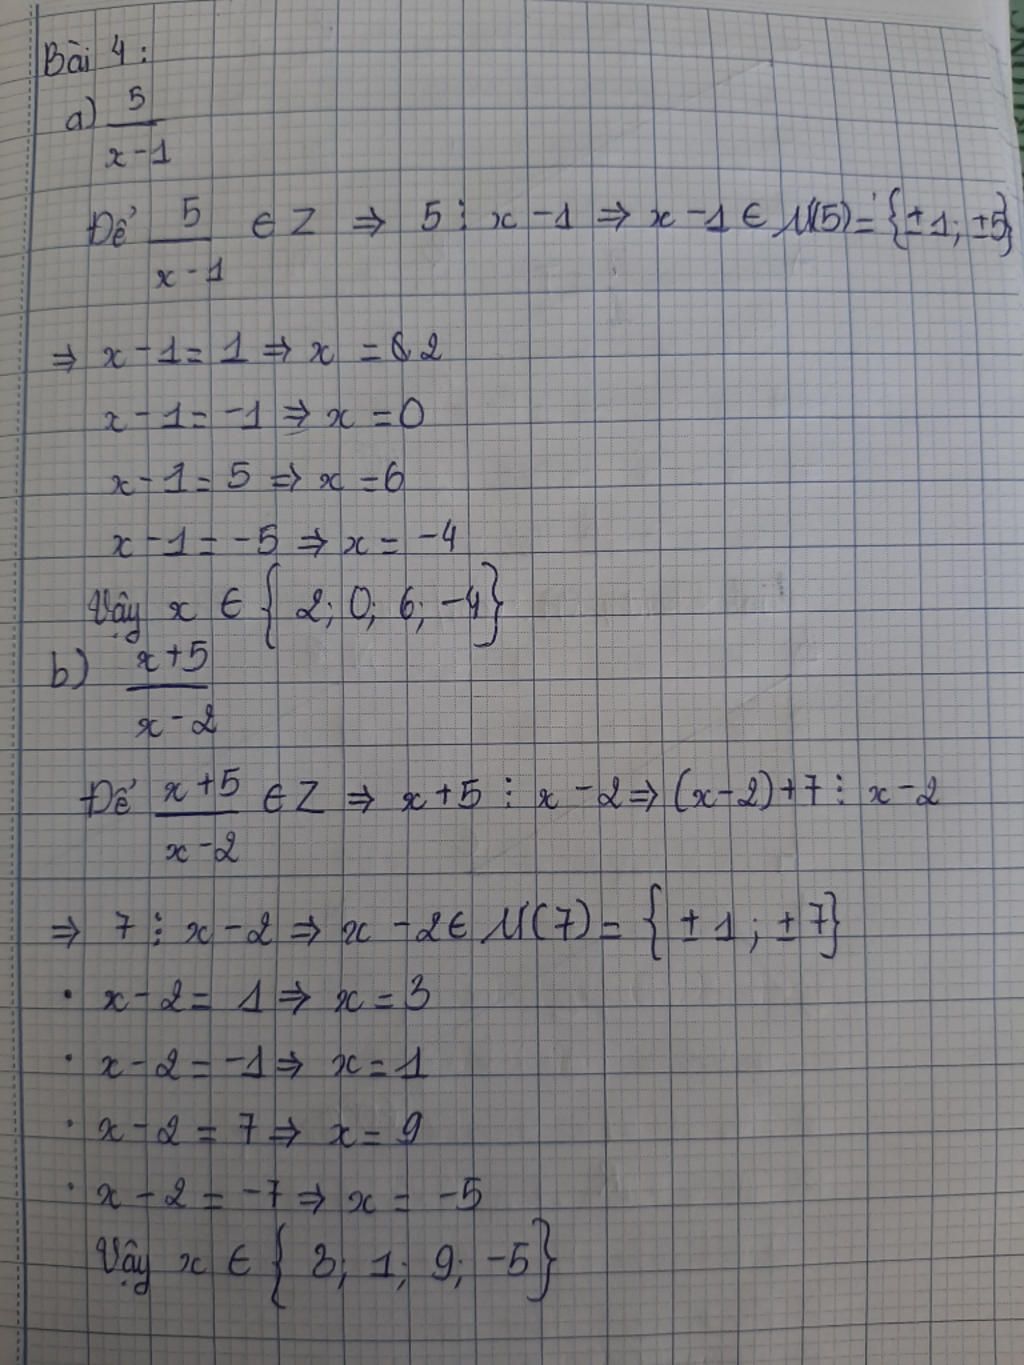 Bài 4:
a) 5/(x-1)
Để 5/(x-1) ∈ Z ⇒ 5 ⋮ x-1 ⇒ x-1 ∈ Ư(5) = {±1; ±5}
⇒ x-1 = 1 ⇒ x = 2
x-1 = -1 ⇒ x = 0
x-1 = 5 ⇒ x = 6
x-1 = -5 ⇒ x = -4
Vậy x ∈ { 2; 0; 6; -4}
b) (x+5)/(x-2)
Để (x+5)/(x-2) ∈ Z ⇒ x+5 ⋮ x-2 ⇒ (x-2)+7 ⋮ x-2
⇒ 7 ⋮ x-2 ⇒ x-2 ∈ Ư(7) = { ±1 ; ±7}
· x-2 = 1 ⇒ x = 3
· x-2 = -1 ⇒ x = 1
· x-2 = 7 ⇒ x = 9
· x-2 = -7 ⇒ x = -5
Vậy x ∈ { 3; 1; 9; -5}